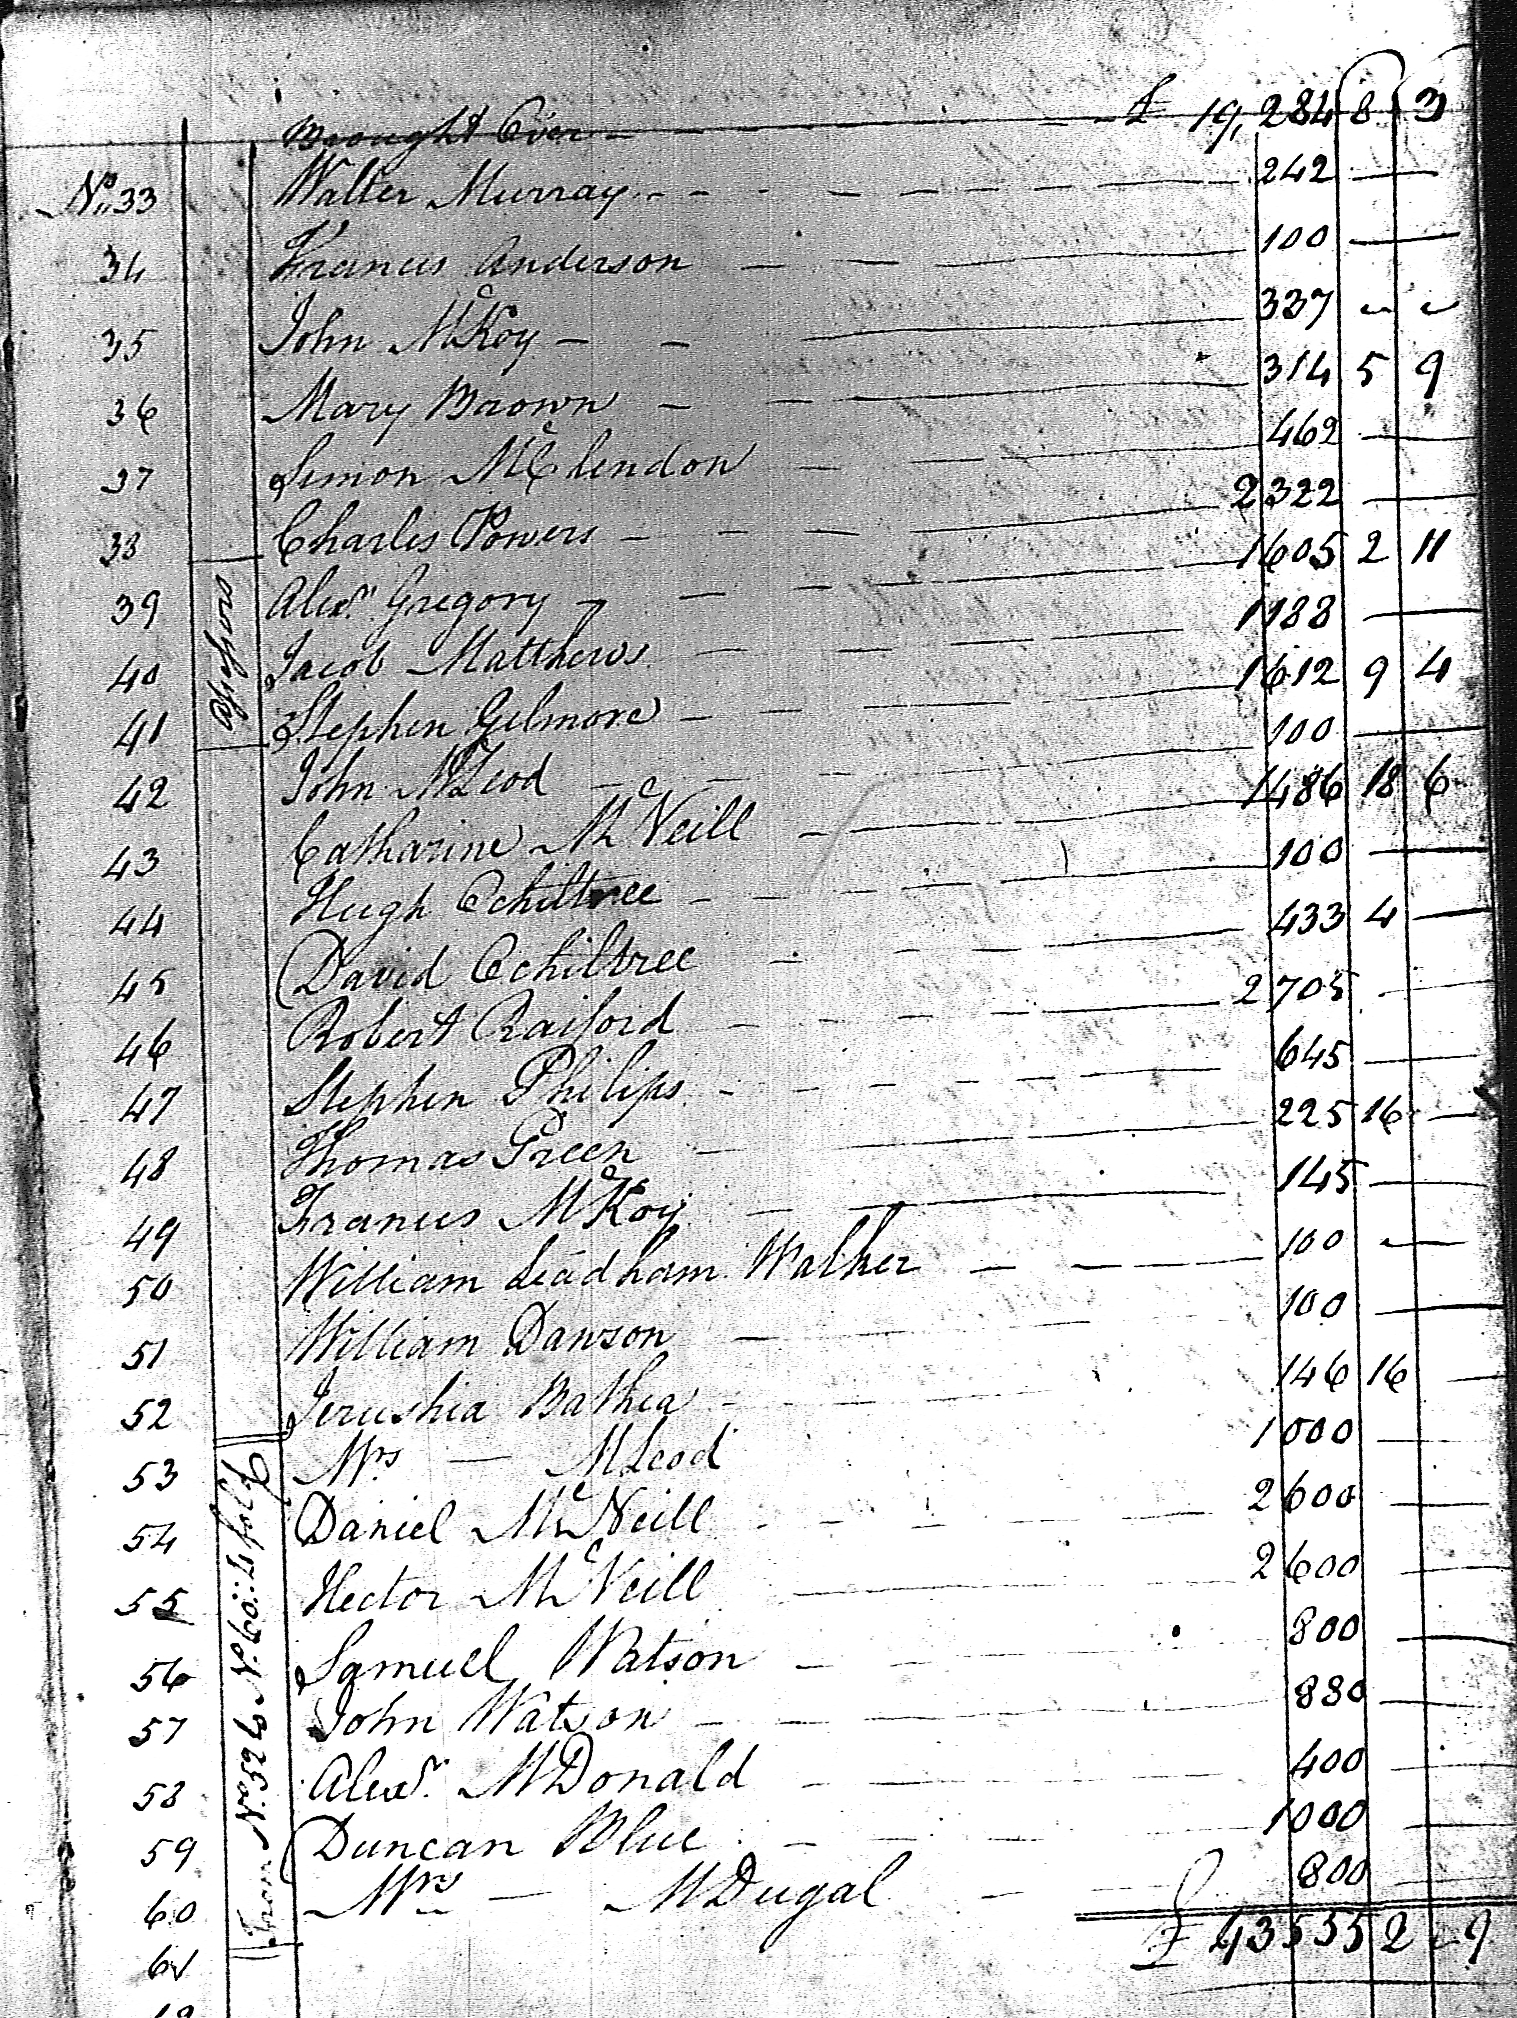 Brought Over - £ 19,284 8 3
No. 33 Walter Murray 242
34 Francis Anderson 100
35 John McKoy 337
36 Mary Brown 314 5 9
37 Simon McClendon 462
38 Charles Powers 2322
39 Alexr. Gregory 1605 2 11
40 Jacob Matthews 1188
41 Stephen Gilmore 1612 9 4
42 John McLeod 100
43 Catharine McNeill 1486 18 6
44 Hugh Ochiltree 100
45 David Ochiltree 433 4
46 Robert Raiford 2705
47 Stephen Philips 645
48 Thomas Green 225 16
49 Francis McKoy 145
50 William Leadham Walker 100
51 William Dawson 100
52 Jerushia Bathia 146 16
53 Mrs — McLeod 1000
54 Daniel McNeill 2600
55 Hector McNeill 2600
56 Samuel Watson 800
57 John Watson 880
58 Alexr. McDonald 400
59 Duncan Blue 1000
60 Mrs — McDugal 800
61 £ 43535 2 - 9
From No. 52 to No. 60